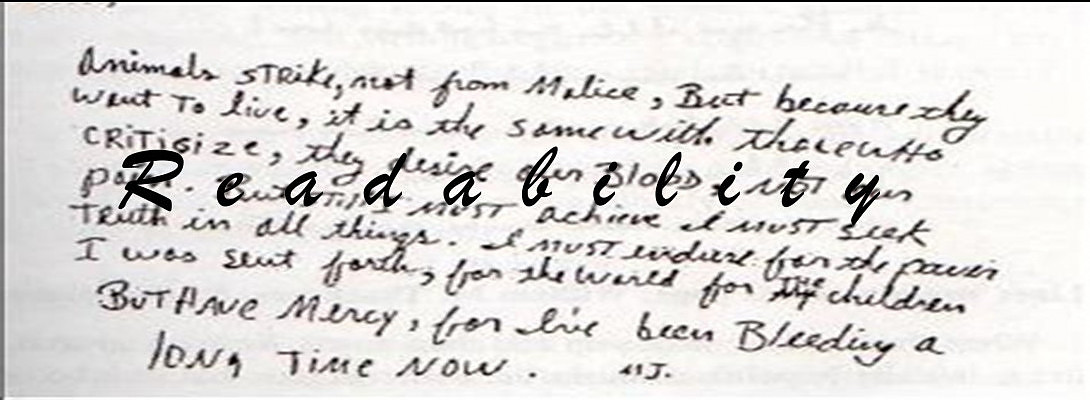 Animals STRike, not from Malice, But because they
want To live, it is the same with those who
CRiTisize, they desire our Blood, NOT our
Readability
pain. But I MUST achieve I MUST seek
TRuth in all things. I MUST endure for the power
I was sent forth, for the world for the children
BUT HAVE Mercy, for I've been Bleeding a
lONg Time NOW. MJ.